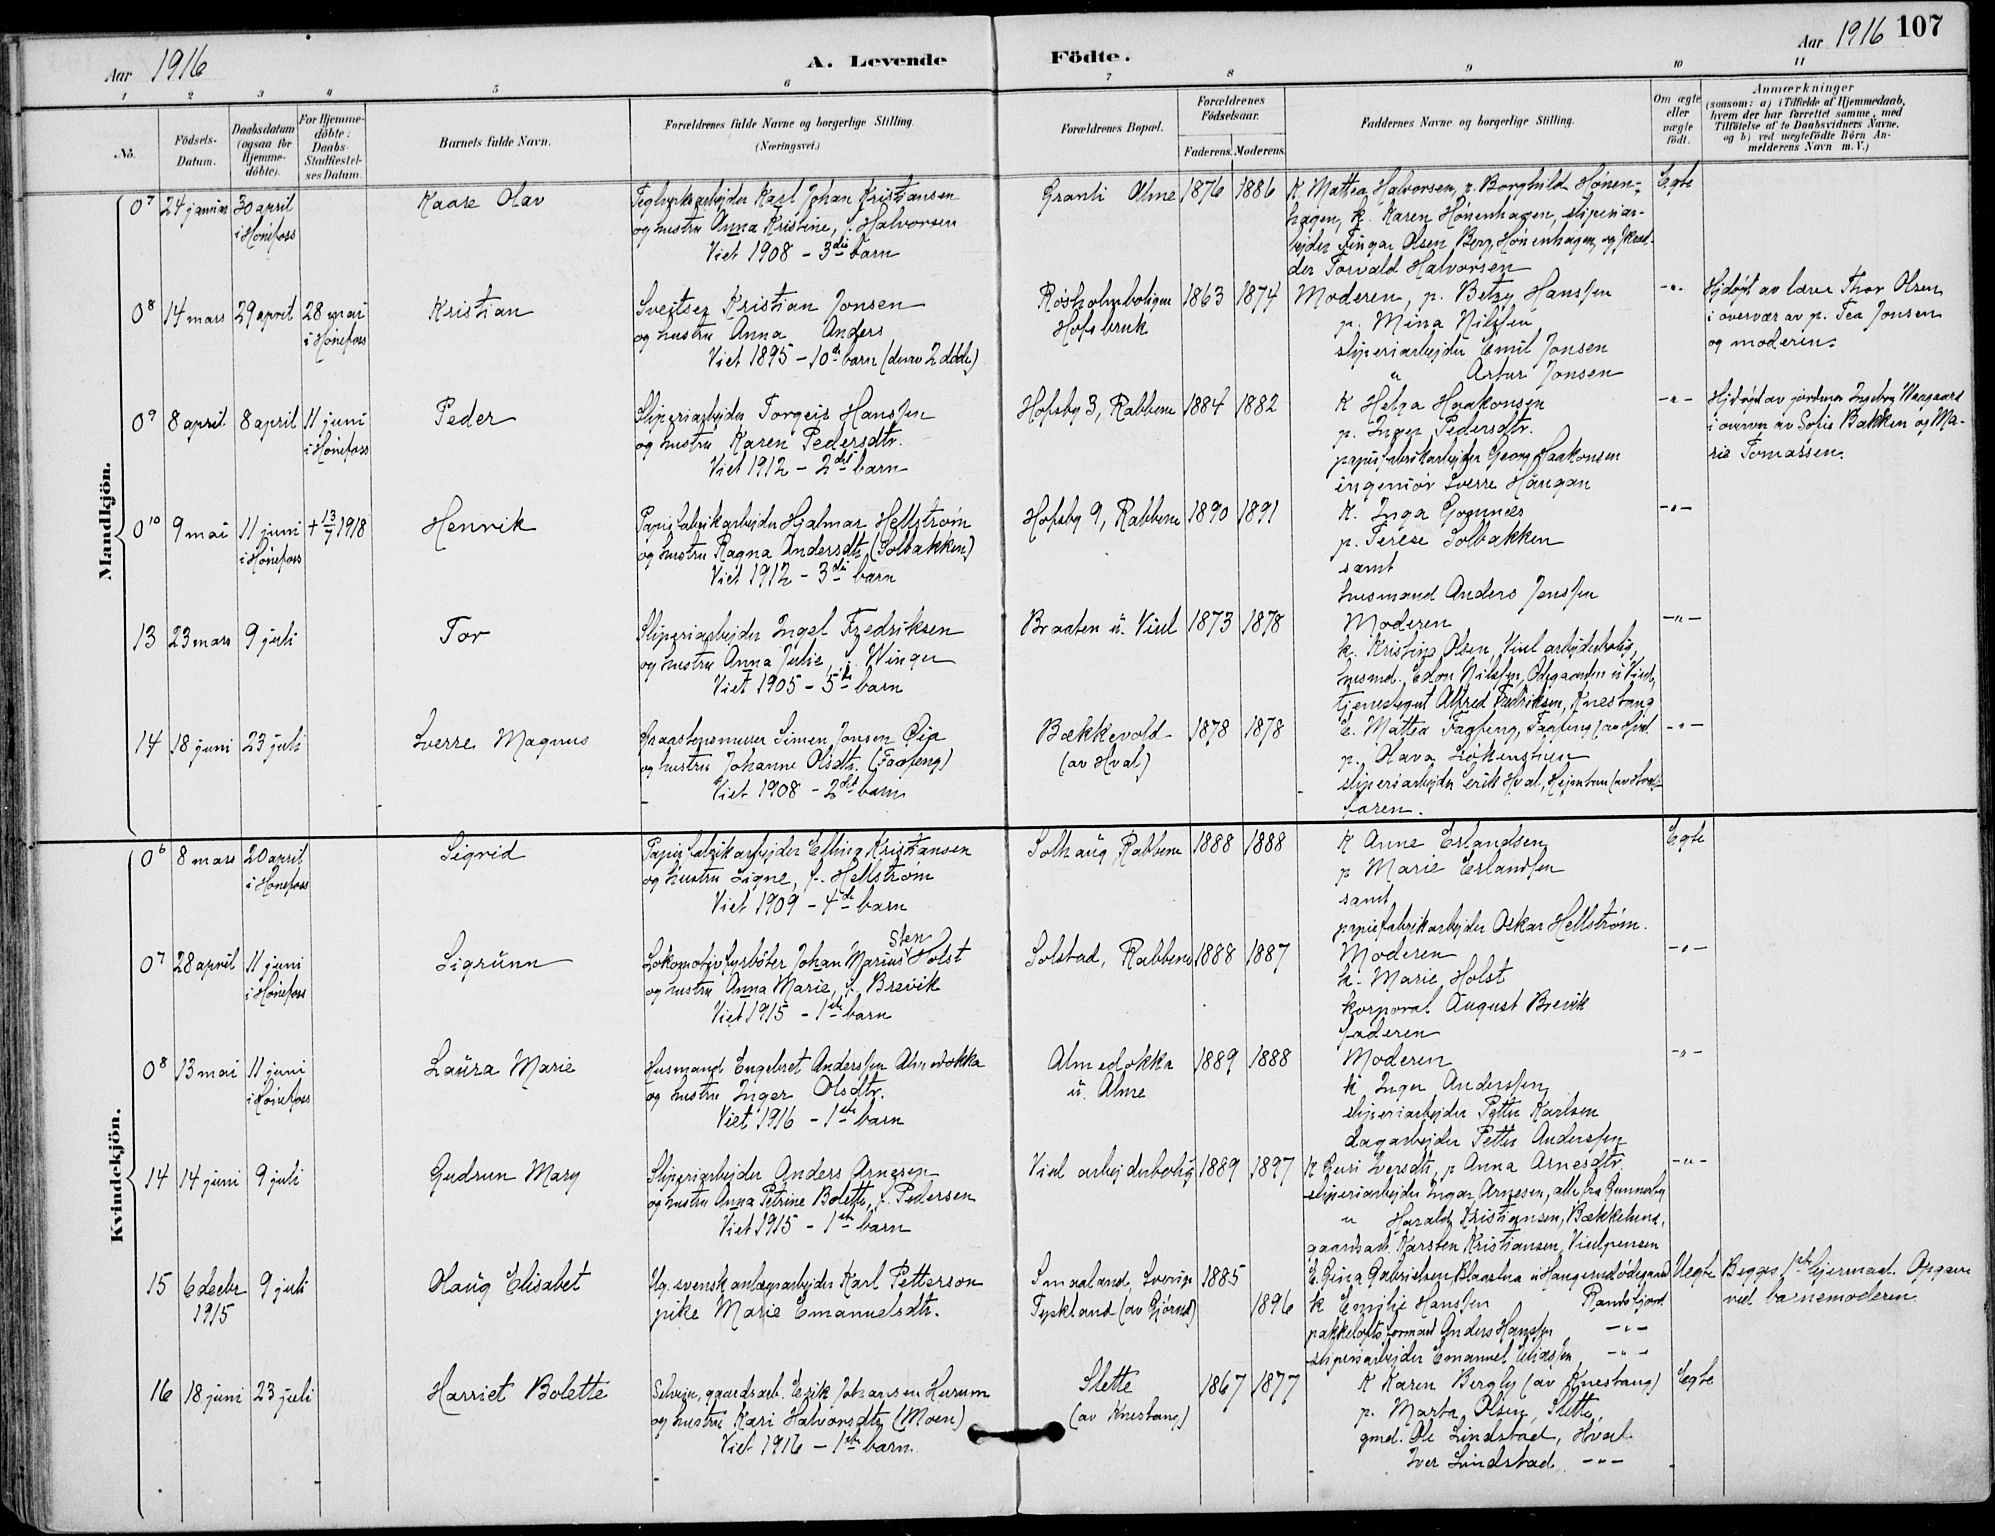 Aar 1916
A. Levende Födte.
Aar 1916 107
1 2 3 4 5 6 7 8 9 10 11
No.
Födsels-
Datum.
Daabsdatum
(ogsaa for
Hjemme-
döbte).
For Hjemme-
döbte:
Daabs-
Stadfæstel-
ses Datum.
Barnets fulde Navn.
Forældrenes fulde Navne og borgerlige Stilling.
(Næringsvei.)
Forældrenes Bopæl.
Forældrenes
Födselsaar.
Faderens. Moderens.
Faddernes Navne og borgerlige Stilling.
Om ægte
eller
uægte
födt.
Anmærkninger
(saasom: a) i Tilfælde af Hjemmedaab,
hvem der har forrettet samme, med
Tilföielse af to Daabsvidners Navne,
og b) ved uægtefödte Börn An-
melderens Navn m. V.)
Mandkjön.
0⁷ 24 januar 30 april
i Hönefoss
Kaare Olav
Teglverksarbeider Karl Johan Kristiansen
og hustru Anna Kristine, f. Halvorsen
Viet 1908 - 3die barn
Granli Alme 1876 1886
K. Mattea Halvorsen, p. Borghild Hönen-
hagen, k. Karen Hönenhagen, sliperiar-
beider Fingar Olsen Berg, Hönenhagen, og skræd-
der Torvald Halvorsen
Egte
0⁸ 14 mars 29 april 28 mai
i Hönefoss
Kristian
Sveitser Kristian Jonsen
og hustru Anna Anders
Viet 1895 - 10de barn (derav 2 döde)
Rösholmboligen
Hofsbruk
1863 1874
Moderen, p. Betzy Hanssen
p. Mina Nilssen
sliperiarbeider Emil Jonsen
" Artur Jonsen
-"-
Hjdöpt av lærer Thor Olsen
i overvær av p. Tea Jonsen
og moderen.
0⁹ 8 april 8 april 11 juni
i Hönefoss
Peder
Sliperiarbeider Torgeir Hanssen
og hustru Karen Pedersdtr.
Viet 1912 - 2det barn
Hofsby 3, Rabbene 1884 1882
K Helga Haakonsen
p. Inger Pedersdtr.
papirfabrikarbeider Georg Haakonsen
ingeniör Sverre Haugan
-"-
Hjdöpt av jordmor Ingeborg
i overvær av Sofie Bakken og Ma-
rie Tomassen.
0¹⁰ 9 mai 11 juni
i Hönefoss
+ 13/7 1918
Henrik
Papirfabrikarbeider Hjalmar Hellström
og hustru Ragna Andersdtr. (Solbakken)
Viet 1912 - 3die barn
Hofsby 9, Rabbene 1890 1891
K. Inga
p. Terese Solbakken
samt
husmand Anders Jenssen
-"-
13 23 mars 9 juli
Tor
Sliperiarbeider Ingel Fredriksen
og hustru Anna Julie, f. Winger
Viet 1905 - 5te barn
Braaten u. Viul 1873 1878
Moderen
k. Kristine Olsen, Viul arbeiderbolig,
husmd. Edon Nilssen, u Viul,
tjenestegut Alfred Fredriksen, Knestang
-"-
14 18 juni 23 juli
Sverre Magnus
Graastensmurer Simen Jonsen Öia
og hustru Johanne Olsdtr. (Fagfeng)
Viet 1908 - 2det barn
Bækkevold
(av Hval)
1878 1878
E. Mattea Fagfeng, Fagfeng (av Hval
p. Olava Lökenstuen
sliperiarbeider Erik Hval,
faren.
-"-
Kvindekjön.
0⁶ 8 mars 20 april
i Hönefoss
Sigrid
Papirfabrikarbeider Elling Kristiansen
og hustru Signe, f. Hellström
Viet 1909 - 4de barn
Solhaug, Rabbene 1888 1888
K Anne Erlandsen
p Marie Erlandsen
samt
papirfabrikarbeider Oskar Hellström.
Egte
0⁷ 28 april 11 juni
i Hönefoss
Sigrunn
Lokomotivfyrböter Johan Marius Sten Holst
og hustru Anna Marie, f. Brevik
Viet 1915 - 1ste barn
Solstad, Rabbene 1888 1887
Moderen
k. Marie Holst
korporal August Brevik
faderen
-"-
0⁸ 13 mai 11 juni
i Hönefoss
Laura Marie
Husmand Engebret Anderssen Almedokka
og hustru Inger Olsdtr.
Viet 1916 - 1ste barn
Almedokka
u. Alme
1889 1888
Moderen
k Inger Anderssen
sliperiarbeider Petter Karlsen
dagarbeider Petter Anderssen
-"-
14 14 juni 9 juli
Gudrun Mary
Sliperiarbeider Anders Arnesen
og hustru Anna Petrine Bolette, f. Pedersen
Viet 1915 - 1ste barn
Viul arbejderbolig 1889 1897
K Guri Iversdtr, p Anna Arnesdtr.
sliperiarbeider Ingar Arnesen, alle fra Gunnerby
" Harald Kristiansen, Bækkelund,
gaardsarb. Karsten Kristiansen,
-"-
15 6 decbr 9 juli
1915
Olaug Elisabet
Ug. svensk anlægsarbeider Karl Petterson
pike Marie Emanuelsdtr.
Smaaland, Sverige 1885
Tyskland (av Gjörud) 1896
E. Gina Gabrielsen
k Emilie Hanssen Randsfjord
pakkeloftsformand Anders Hanssen -"-
sliperiarbeider Emanuel Eliassen -"-
Uegte
Begges 1ste leiermaal. Opgave
ved barnemoderen.
16 18 juni 23 juli
Harriet Bolette
Selveier, gaardsarb. Erik Johansen Hurum
og hustru Kari Halvorsdtr. (Moen)
Viet 1916 - 1ste barn.
Slette
(av Knestang)
1867 1877
K Karen Bergly (av Knestang)
p. Marta Olsen, Slette,
gmd. Ole Lindstad, Hval
Iver Lindstad -"-
Egte